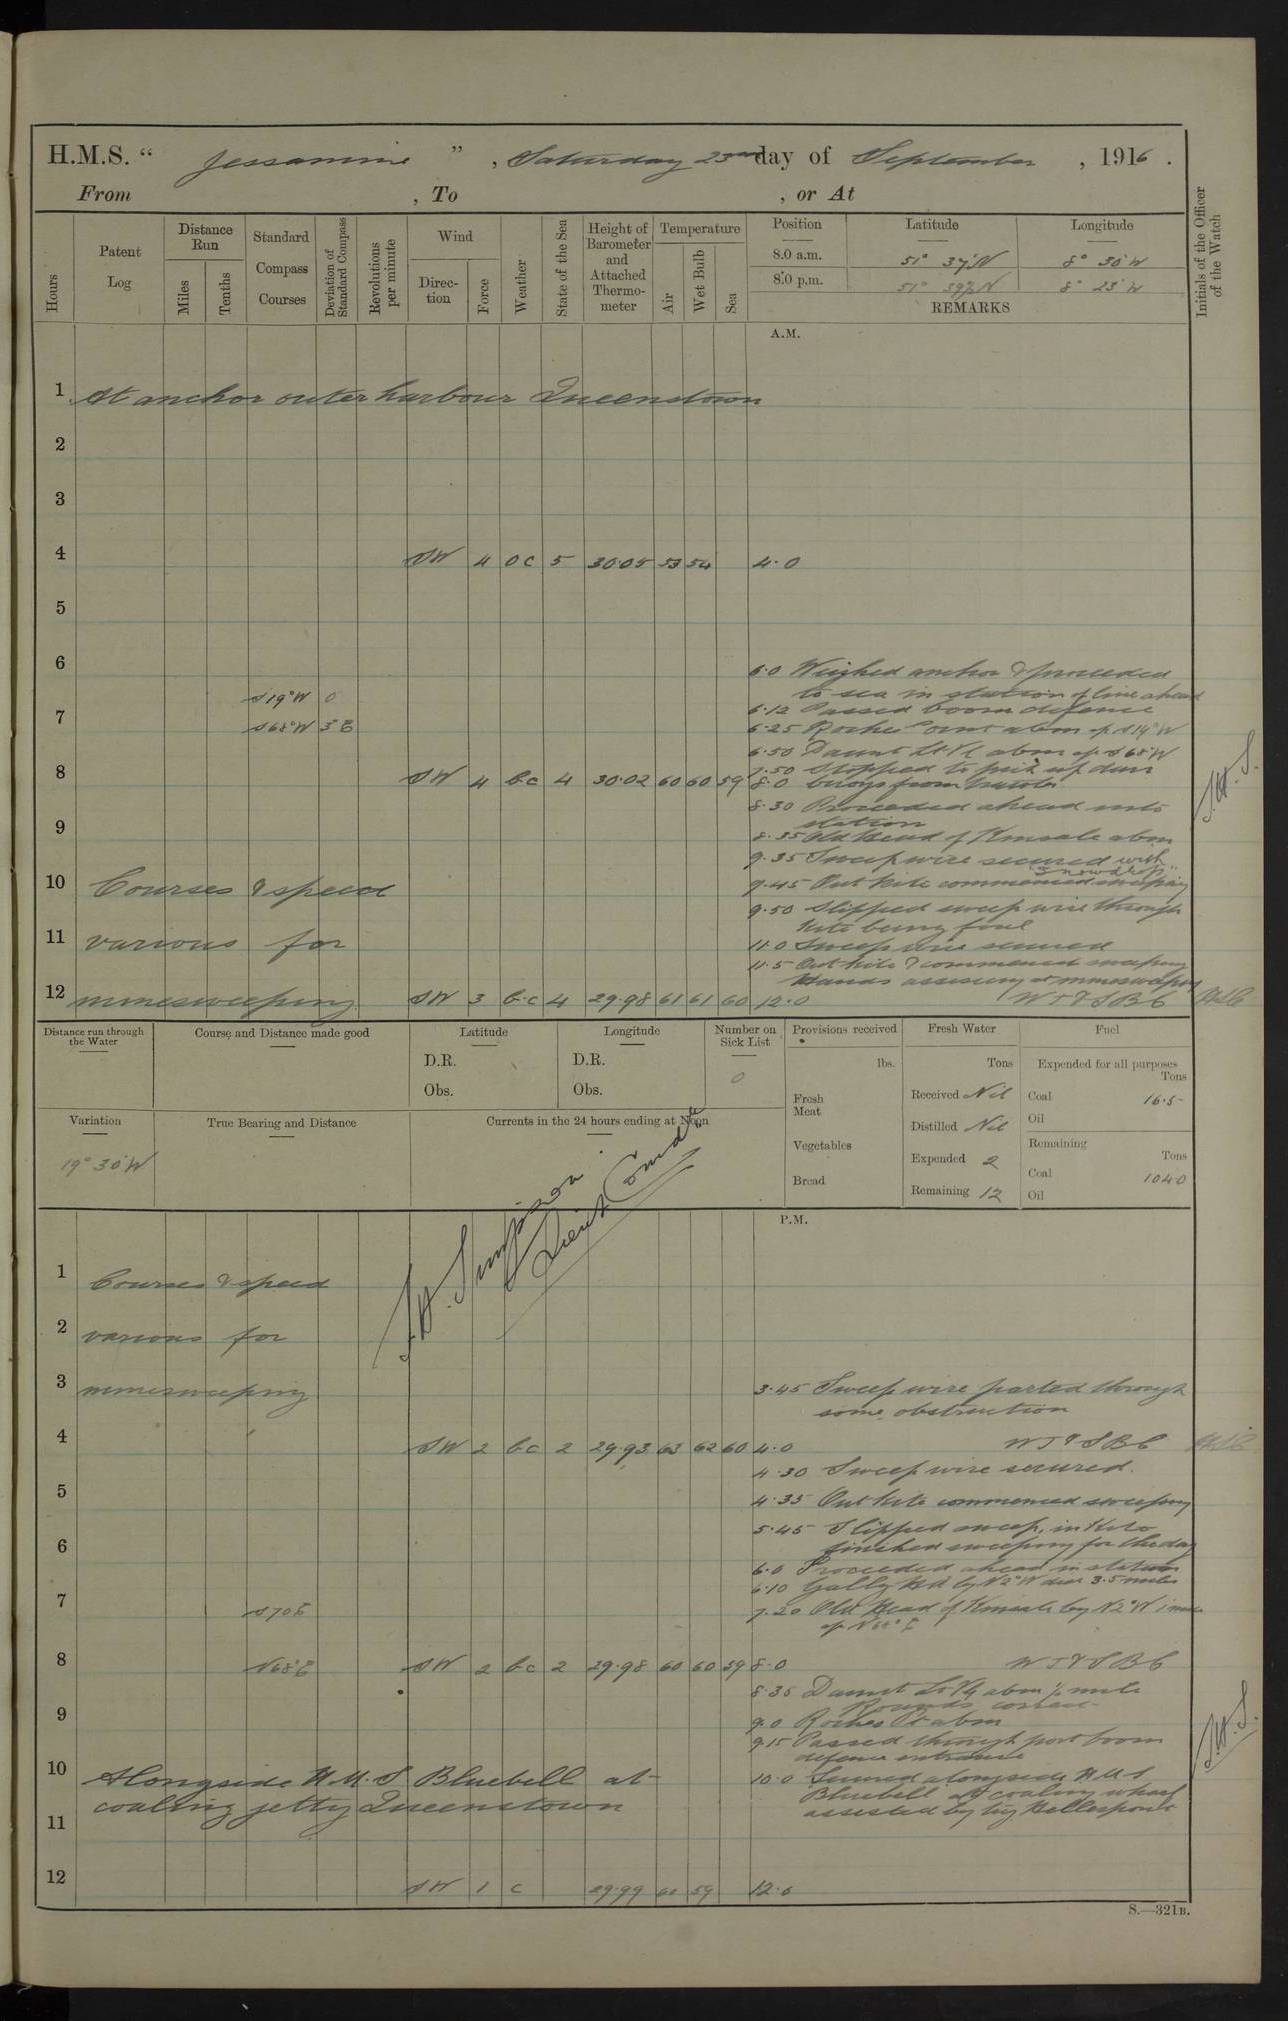 H.M.S. “ Jessamine ” , Saturday 23rd day of September , 1916 .
From , To , or At
Hours
Patent Log
Distance Run
Miles
Tenths
Standard Compass Courses
Deviation of Standard Compass
Revolutions per minute
Wind
Direction
Force
Weather
State of the Sea
Height of Barometer and Attached Thermometer
Temperature
Air
Wet Bulb
Sea
Position Latitude Longitude
8.0 a.m. 51° 37' N 8° 36' W
8.0 p.m. 51° N 8° 23' W
REMARKS
Initials of the Officer of the Watch
A.M.
1 At anchor outer harbour Queenstown
2
3
4 SW 4 oc 5 30.05 53 54 4.0
5
6 6.0 Weighed anchor & proceeded
S19°W 0 to sea in station of line ahead
7 6.12 Passed boom defence
S68°W 3°E 6.25 Roche Point abm
6.50 Daunt Lt. Vl abm S68°W
7.50 Stopped to pick up dan
8 SW 4 bc 4 30.02 60 60 59 8.0 buoys from
J.H.S.
8.30 Proceeded ahead into
station
9 8.35 Old Head of Kinsale abm
9.35 Sweep wire secured with
"Snowdrop"
10 Courses & speed 9.45 Out kite commenced sweeping
9.50 Slipped sweep wire through
kite being foul
11 various for 11.0 Sweep wire secured
11.5 Out kite & commenced sweeping
Hands assisting at minesweeping
12 minesweeping SW 3 b.c 4 29.98 61 61 60 12.0 WT & SBC
Distance run through the Water
Course and Distance made good
Latitude
D.R.
Obs.
Longitude
D.R.
Obs.
Number on Sick List
0
Provisions received
lbs.
Fresh Meat
Vegetables
Bread
Fresh Water
Tons
Received Nil
Distilled Nil
Expended 2
Remaining 12
Fuel
Expended for all purposes
Tons
Coal 16.5
Oil
Remaining
Tons
Coal 104.0
Oil
Variation
19° 30' W
True Bearing and Distance
Currents in the 24 hours ending at Noon
J.H. Simpson
Lieut Comdr
P.M.
1 Courses & speed
2 various for
3 minesweeping 3.45 Sweep wire parted through
some obstruction
4 SW 2 bc 2 29.93 63 62 60 4.0 WT & SBC
4.30 Sweep wire secured.
5 4.35 Out kite commenced sweeping
5.45 Slipped sweep, in kite
6 finished sweeping for the day
6.0 Proceeded ahead in station
6.10 Gally Hd by N2°W dist 3.5 miles
7 S70E 7.20 Old Head of Kinsale by N2°W 1 mile
8 N68°E SW 2 bc 2 29.98 60 60 59 8.0 WT & SBC
8.35 Daunt Lt Vl abm ½ mile
Rounds correct
9 9.0 Roches Pt abm
9.15 Passed through port boom
defence entrance
J.H.S.
10 Alongside H.M.S Bluebell at 10.0 Secured alongside H.M.S
coaling jetty Queenstown "Bluebell" at coaling wharf
11 assisted by tug Hellespont
12 SW 1 c 29.99 59 12.0
S.—321B.